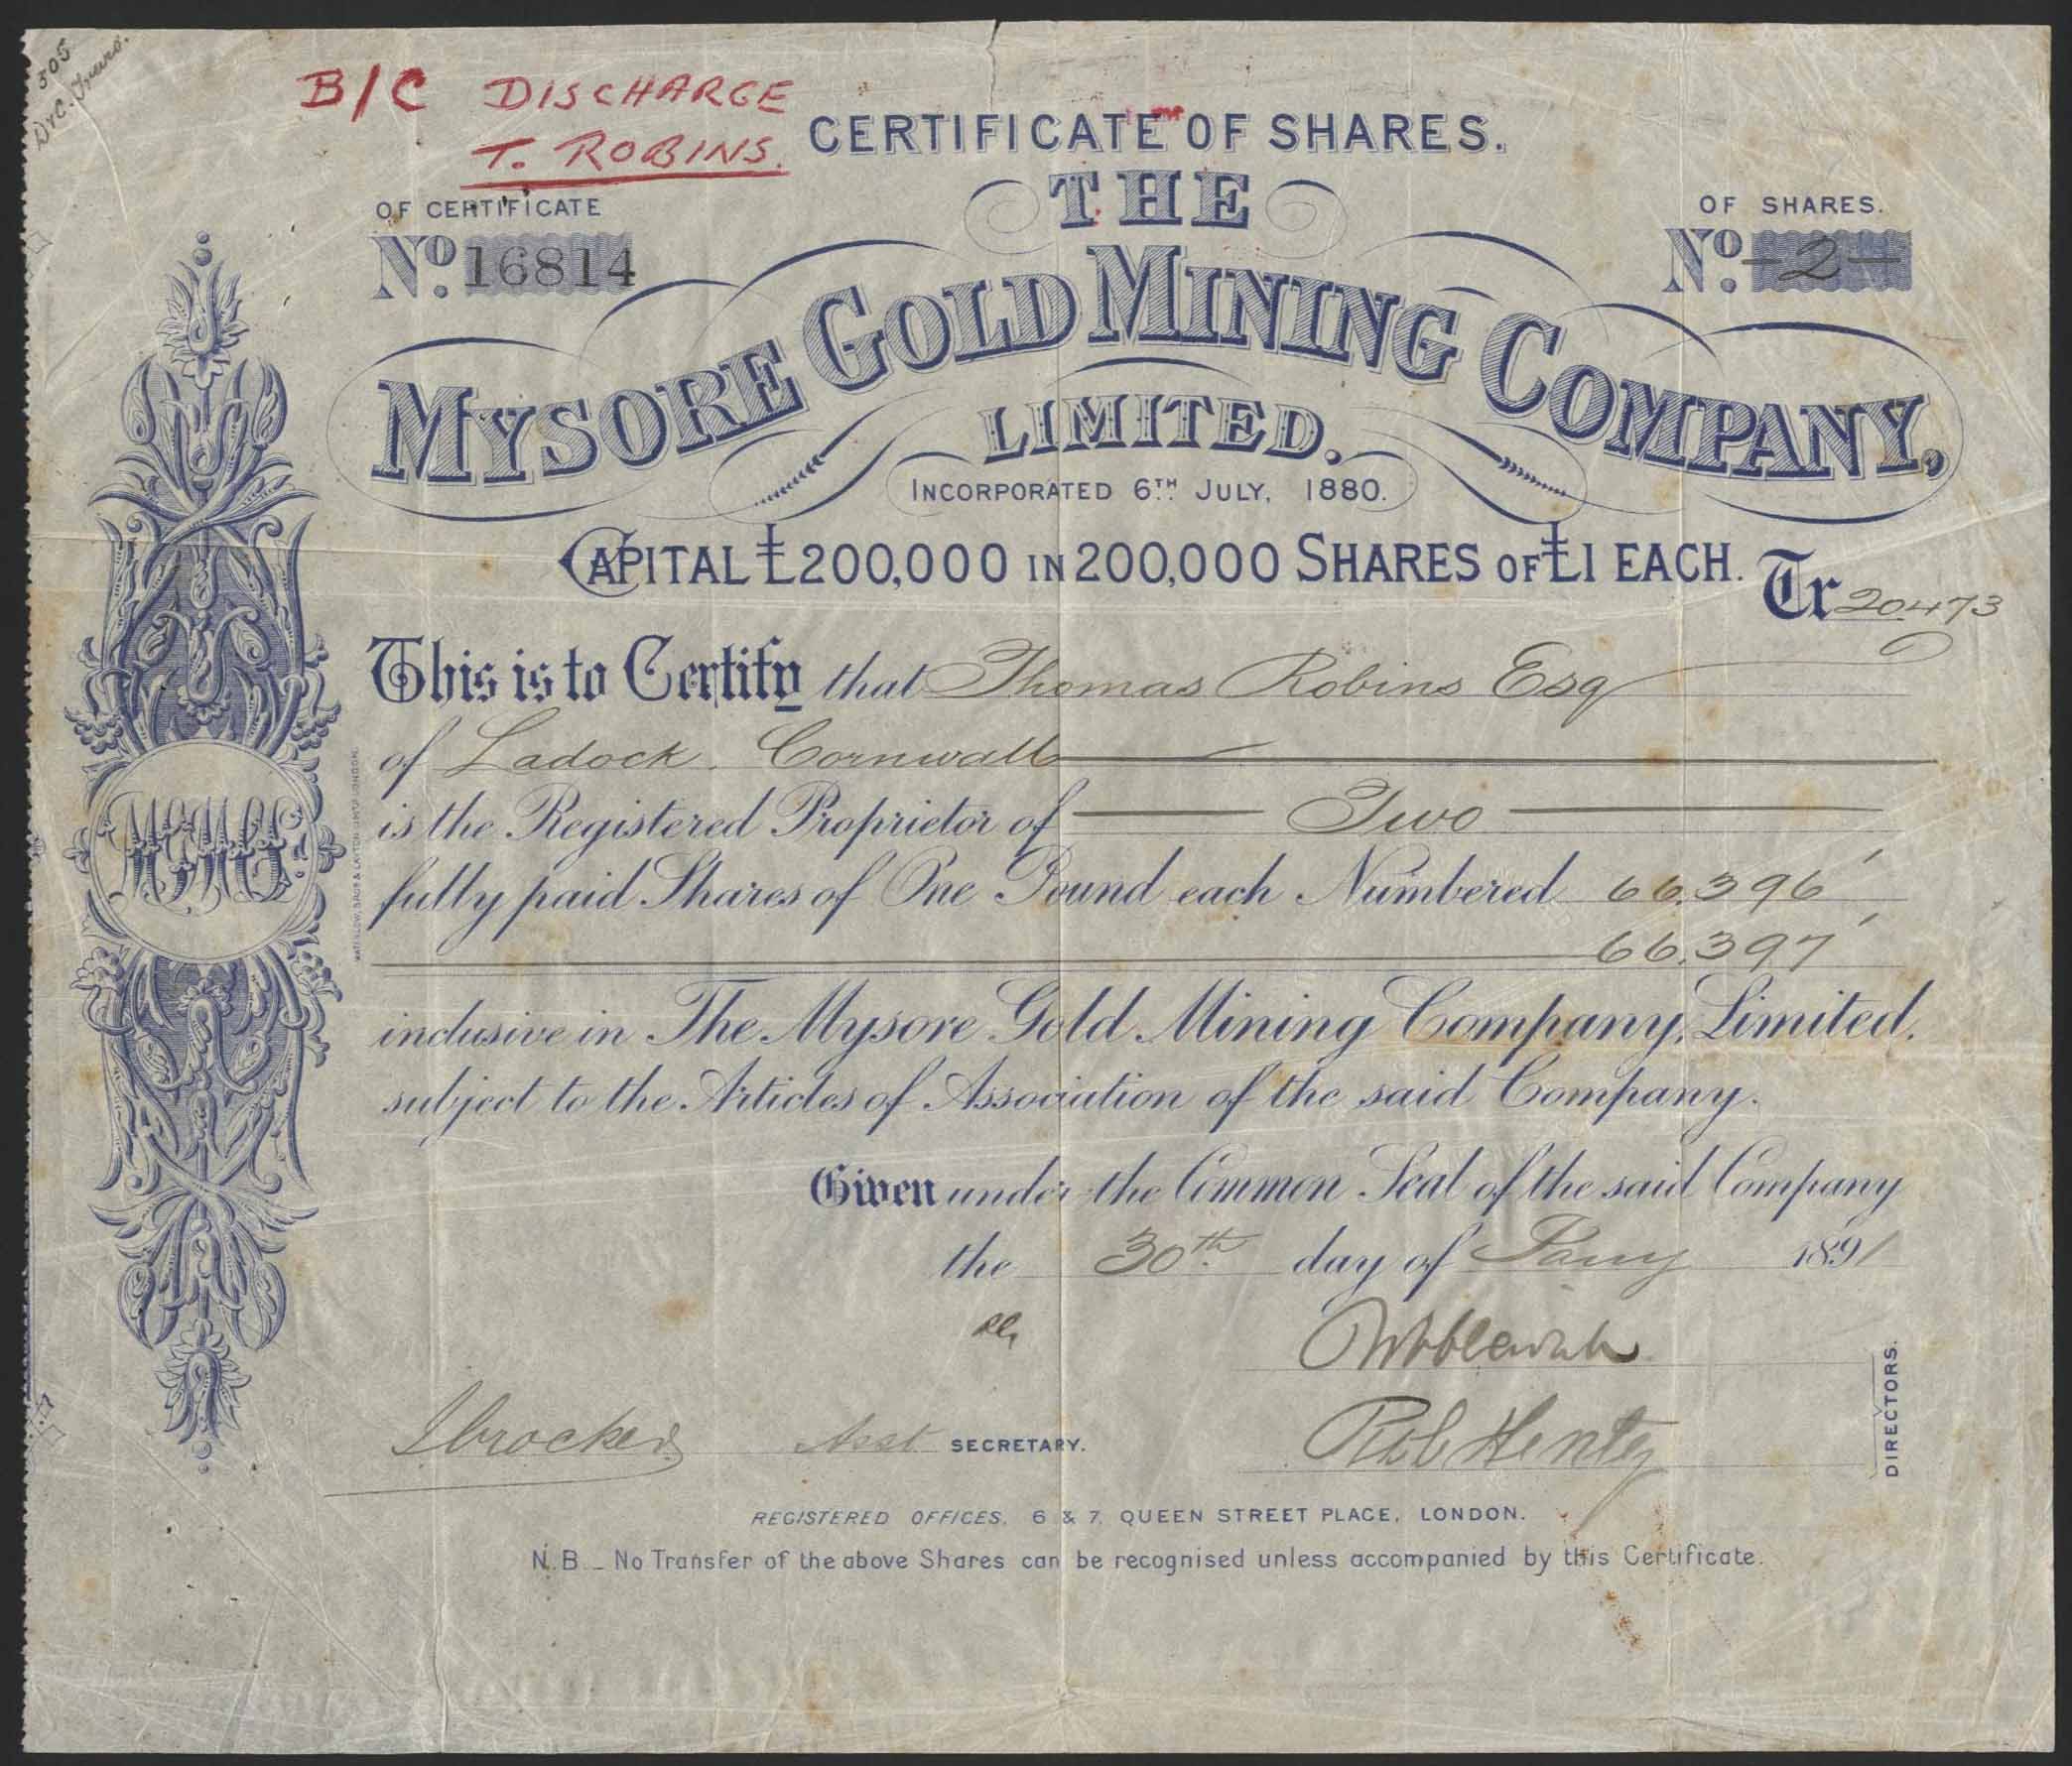 305
D & C. Truro.
B/C DISCHARGE
T. ROBINS.
CERTIFICATE OF SHARES.
OF CERTIFICATE
No. 16814
OF SHARES.
No. - 2 -
THE
MYSORE GOLD MINING COMPANY,
LIMITED.
INCORPORATED 6TH JULY, 1880.
CAPITAL £200,000 IN 200,000 SHARES OF £1 EACH.
Tr 20473
This is to Certify that Thomas Robins Esq
of Ladock, Cornwall
is the Registered Proprietor of Two
fully paid Shares of One Pound each Numbered 66,396
66,397
inclusive in The Mysore Gold Mining Company, Limited,
subject to the Articles of Association of the said Company.
Given under the Common Seal of the said Company
the 30th day of Jany 1891
Asst SECRETARY.
Rob Henty
DIRECTORS.
REGISTERED OFFICES, 6 & 7, QUEEN STREET PLACE, LONDON.
N.B. _ No Transfer of the above Shares can be recognised unless accompanied by this Certificate.
M.G.M.Co.
WATERLOW BROS & LAYTON LIMITED LONDON.